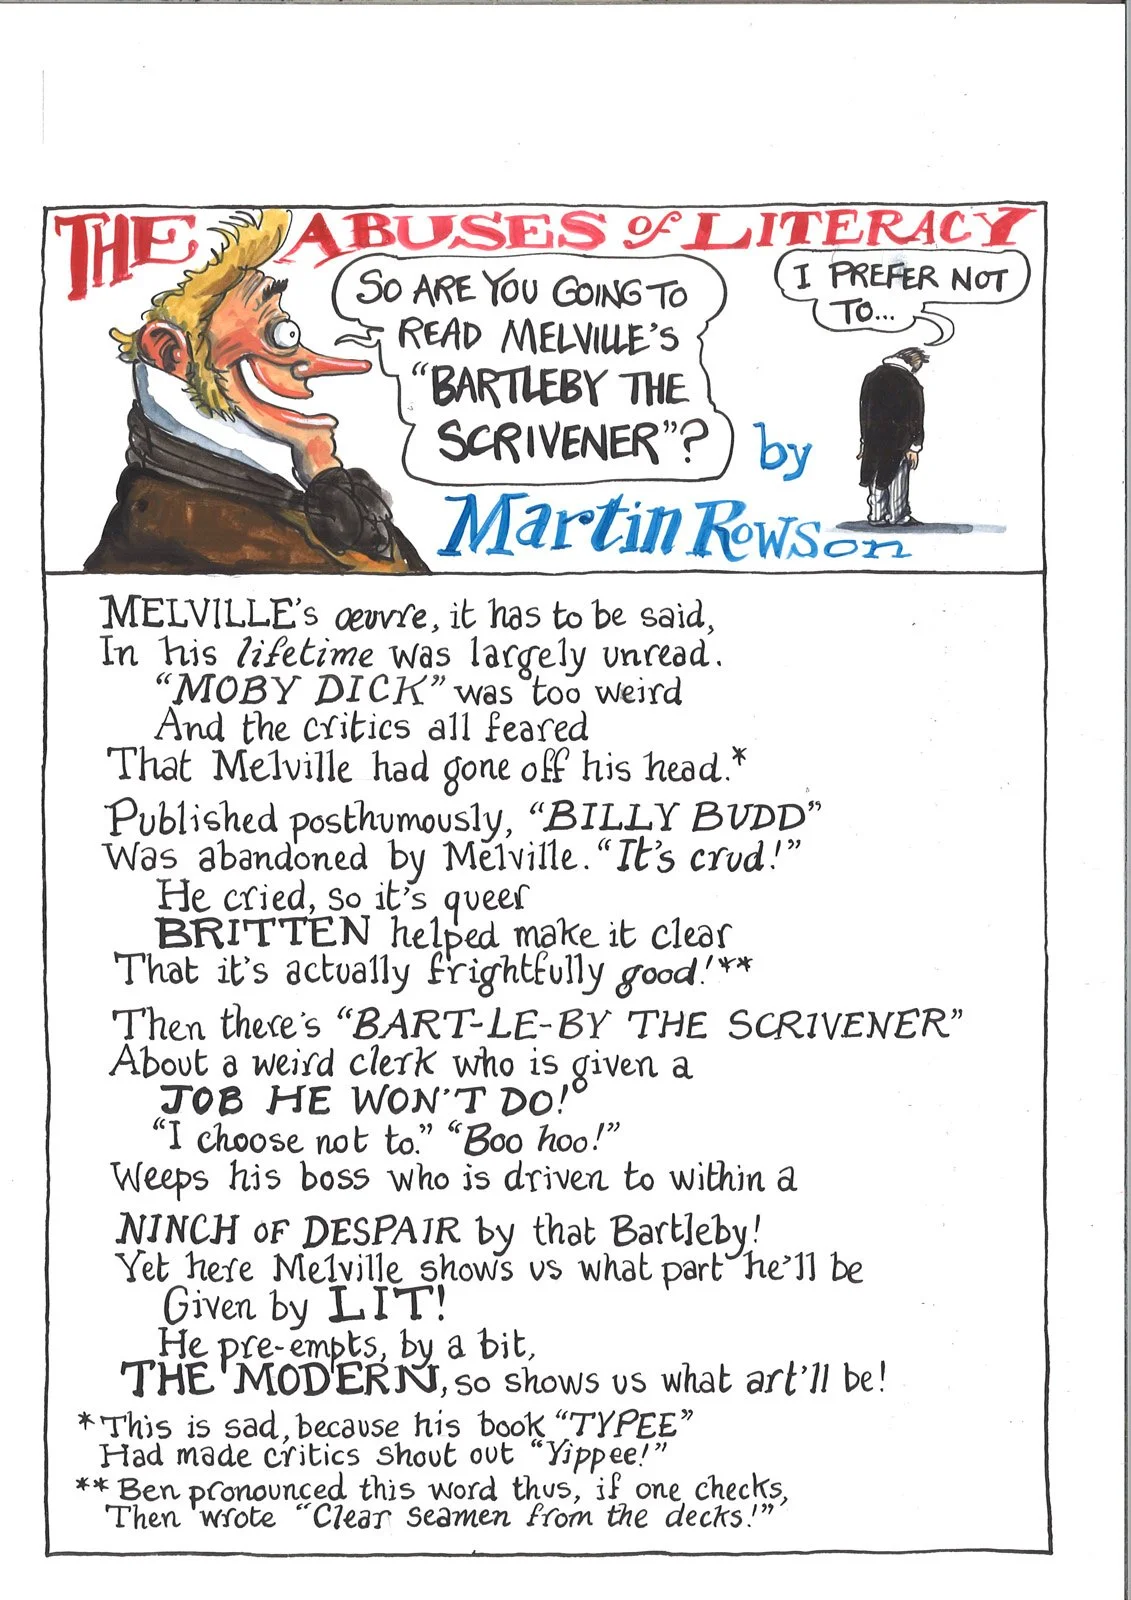 THE ABUSES of LITERACY
SO ARE YOU GOING TO
READ MELVILLE'S
"BARTLEBY THE
SCRIVENER"?
I PREFER NOT
TO...
by
Martin Rowson
MELVILLE's œuvre, it has to be said,
In his lifetime was largely unread.
"MOBY DICK" was too weird
And the critics all feared
That Melville had gone off his head.*
Published posthumously, "BILLY BUDD"
Was abandoned by Melville. "It's crud!"
He cried, so it's queer
BRITTEN helped make it clear
That it's actually frightfully good!**
Then there's "BART-LE-BY THE SCRIVENER"
About a weird clerk who is given a
JOB HE WON'T DO!
"I choose not to." "Boo hoo!"
Weeps his boss who is driven to within a
NINCH OF DESPAIR by that Bartleby!
Yet here Melville shows us what part he'll be
Given by LIT!
He pre-empts, by a bit,
THE MODERN, so shows us what art'll be!
*This is sad, because his book "TYPEE"
Had made critics shout out "Yippee!"
** Ben pronounced this word thus, if one checks,
Then wrote "Clear seamen from the decks!"